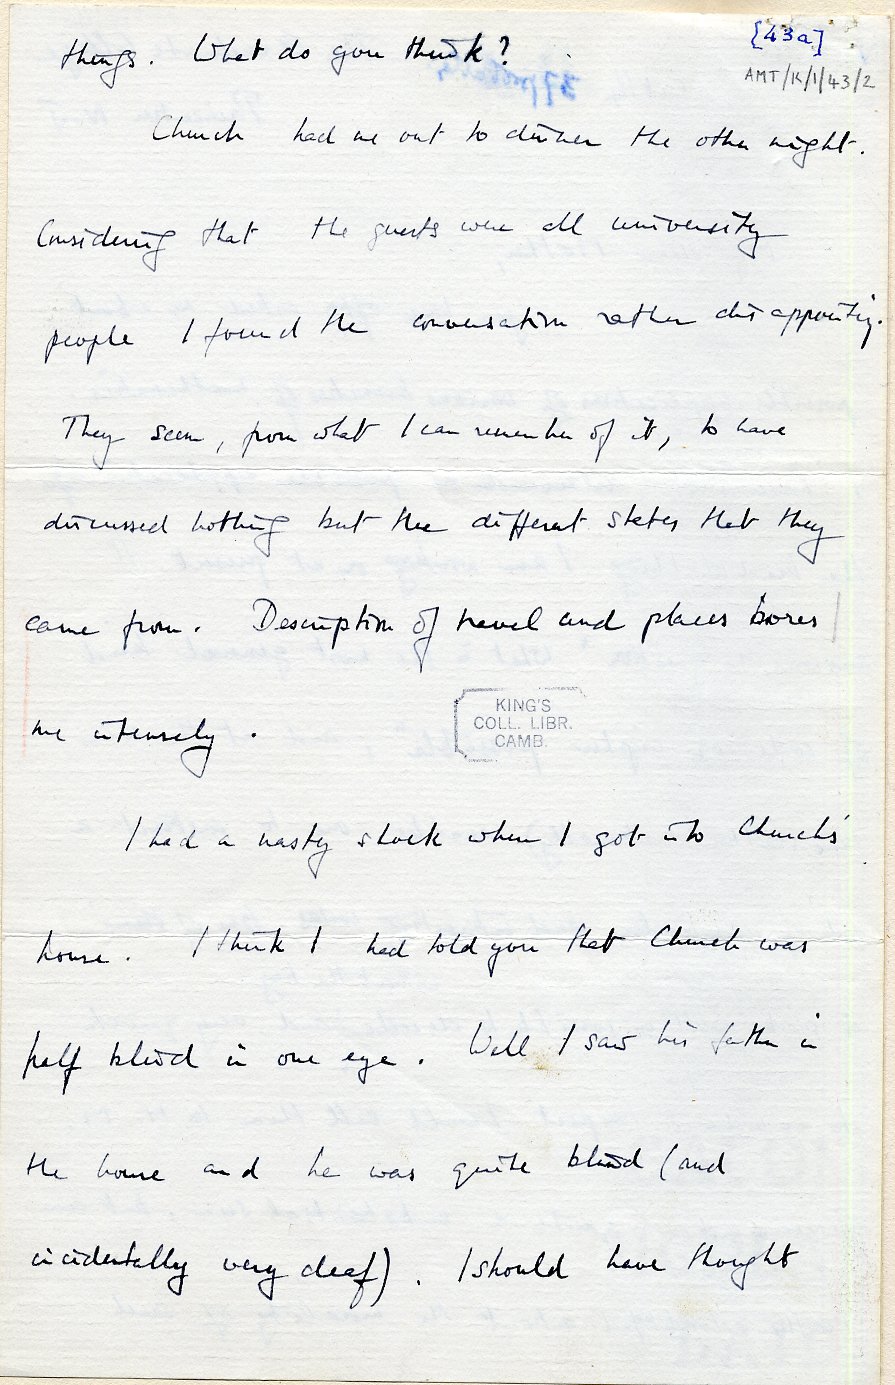 [43a]
AMT/K/1/43/2
things. What do you think?
Church had me out to dinner the other night.
Considering that the guests were all university
people I found the conversation rather disappointing.
They seem, from what I can remember of it, to have
discussed nothing but the different states that they
came from. Description of travel and places bores
me intensely.
KING'S
COLL. LIBR.
CAMB.
I had a nasty shock when I got into Church's
house. I think I had told you that Church was
half blind in one eye. Well I saw his father in
the house and he was quite blind (and
incidentally very deaf). I should have thought